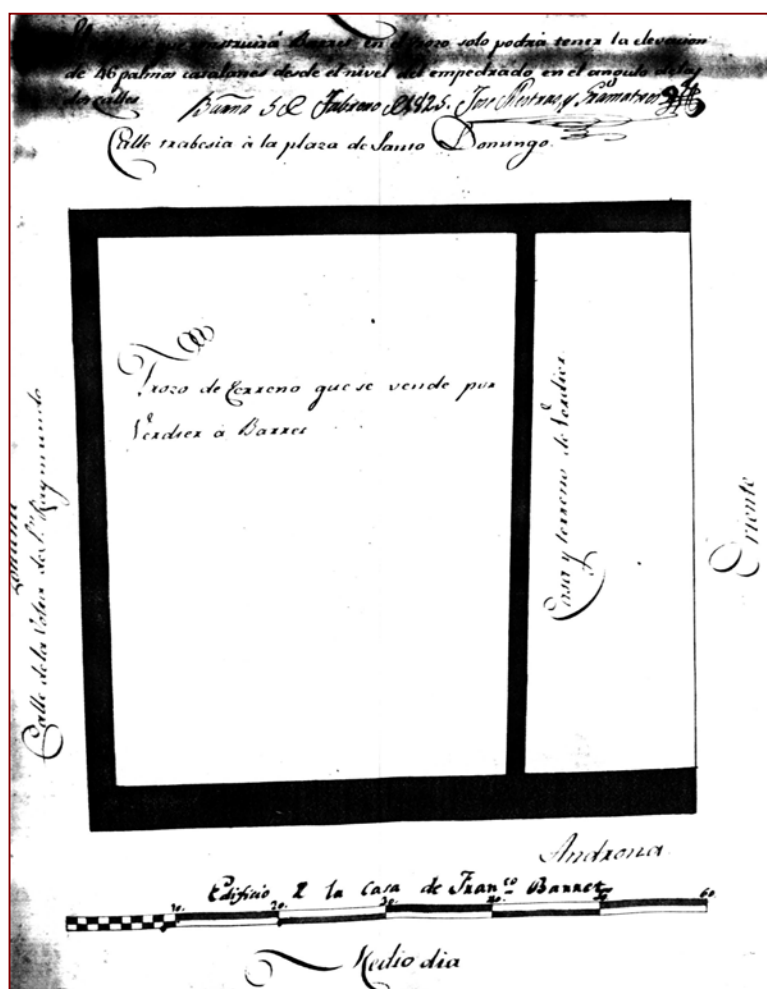 que construirá Barret en el trozo solo podrá tener la elevacion
de 46 palmos catalanes desde el nivel del empedrado en el angulo de las
dos calles.
Barna 5 de Febrero de 1825. Jose Mestres y Gramatxes
Calle trabesia à la plaza de Santo Domingo.
Trozo de terreno que se vende por
Verdier à Barret
Casa y terreno de Verdier
Calle de la Volta de Sn. Raymundo
Oriente
Androna
Edificio ó la Casa de Franco. Barret
10. 20. 30. 40. 50 60.
Medio dia